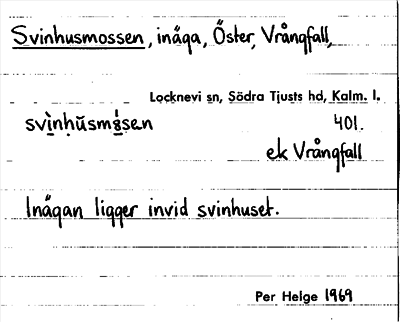 Svinhusmossen, inäga, Öster, Vrångfall,
Locknevi sn, Södra Tjusts hd, Kalm. l.
401.
ek Vrångfall
Inägan ligger invid svinhuset.
Per Helge 1969